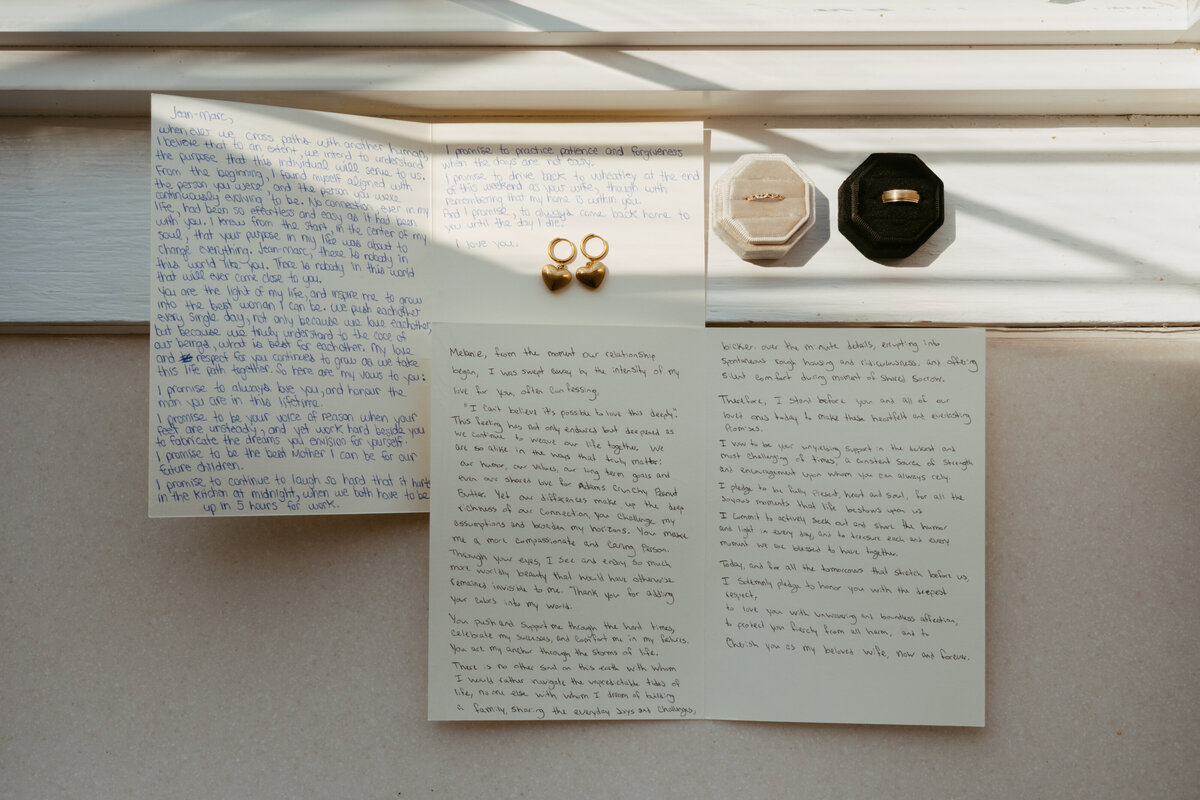 Jean-Marc,
when ever we cross paths with another human,
I believe that to an extent, we intend to understand
the purpose that this individual will serve to us.
From the beginning, I found myself aligned with
the person you were, and the person you were
continuously evolving to be. No connection, ever in my
life, had been so effortless and easy as it had been
with you. I knew from the start, in the center of my
soul, that your purpose in my life was about to
change everything. Jean-Marc, there is nobody in
this world like you. There is nobody in this world
that will ever come close to you.
You are the light of my life, and inspire me to grow
into the best woman I can be. We push eachother
every single day, not only because we love eachother,
but because we truly understand to the core of
our beings, what is best for eachother. My love
and respect for you continues to grow as we take
this life path together. So here are my vows to you:
I promise to always love you, and honour the
man you are in this lifetime.
I promise to be your voice of reason when your
feet are unsteady, and yet work hard beside you
to fabricate the dreams you envision for yourself.
I promise to be the best Mother I can be for our
future children.
I promise to continue to laugh so hard that it hurts
in the kitchen at midnight, when we both have to be
up in 5 hours for work.
I promise to practice patience and forgiveness
when the days are not easy.
I promise to drive back to Wheatley at the end
of this weekend as your wife, though with
remembering that my home is within you.
And I promise, to always come back home to
you until the day I die.
I love you.
Melanie, from the moment our relationship
began, I was swept away by the intensity of my
love for you, often confessing,
"I can't believe it's possible to love this deeply".
This feeling has not only endured but deepened as
we continue to weave our life together. We
are so alike in the ways that truly matter:
our humor, our values, our long term goals and
even our shared love for Adams Crunchy Peanut
Butter. Yet our differences make up the deep
richness of our connection. You challenge my
assumptions and broaden my horizons. You make
me a more compassionate and caring person.
Through your eyes, I see and enjoy so much
more worldly beauty that would have otherwise
remained invisible to me. Thank you for adding
your colors into my world.
You push and support me through the hard times,
celebrate my successes, and comfort me in my failures.
You are my anchor through the storms of life.
There is no other soul on this earth with whom
I would rather navigate the unpredictable tides of
life, no one else with whom I dream of building
a family, sharing the everyday joys and challenges,
bicker over the minute details, erupting into
spontaneous rough housing and ridiculousness. and offering
silent comfort during moment of shared sorrow.
Therefore, I stand before you and all of our
loved ones today to make these heartfelt and everlasting
Promises.
I vow to be your unyielding support in the busiest and
most challenging of times, a constant source of strength
and encouragement upon whom you can always rely.
I pledge to be fully present, heart and soul, for all the
joyous moments that life bestows upon us
I commit to actively seek out and share the humor
and light in every day, and to treasure each and every
moment we are blessed to have together.
Today, and for all the tomorrows that stretch before us,
I solemnly pledge to honor you with the deepest
respect,
to love you with unwavering and boundless affection,
to protect you fiercly from all harm, and to
Cherish you as my beloved wife, now and forever.